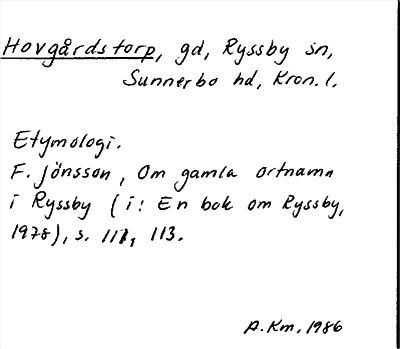 Hovgårdstorp, gd, Ryssby sn,
Sunnerbo hd, Kron. l.
Etymologi.
F. Jönsson, Om gamla ortnamn
i Ryssby (i: En bok om Ryssby,
1978), s. 111, 113.
A. Km, 1986